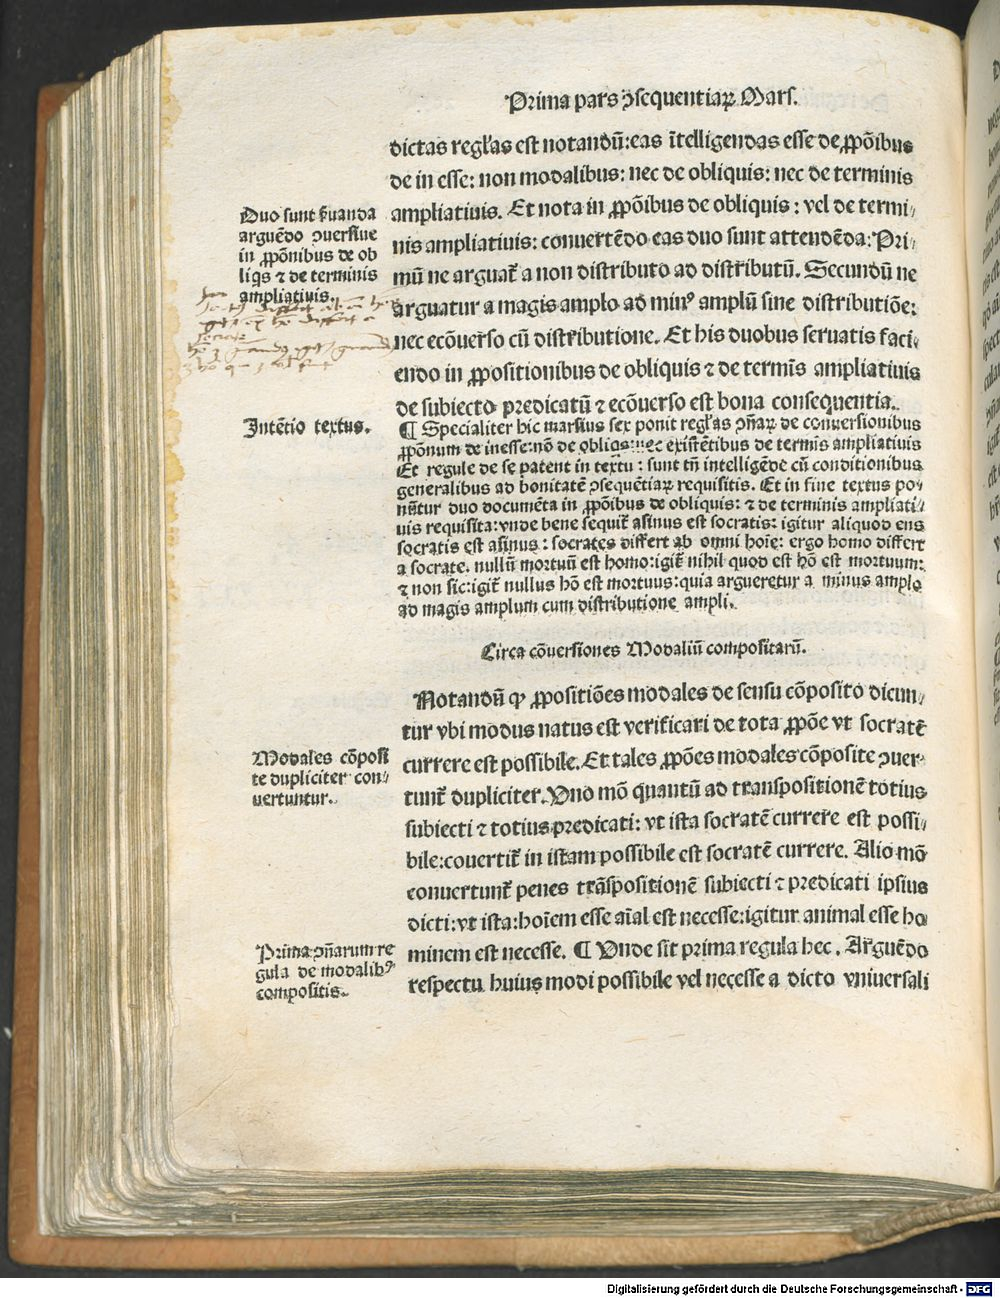 Prima pars ꝯsequentiaꝝ Mars.
dictas regl̓as est notandū: eas ītelligendas esse de ꝓpōibus
de in esse: non modalibus: nec de obliquis: nec de terminis
ampliatiuis. Et nota in ꝓpōibus de obliquis: vel de termi⸗
nis ampliatiuis: conuertēdo eas duo sunt attendēda: Pri⸗
mū ne arguat̄ a non distributo ad distributū. Secundū ne
arguatur a magis amplo ad minꝰ amplū sine distributiōe:
nec ecōuerso cū distributione. Et his duobus seruatis faci⸗
endo in ꝓpositionibus de obliquis ⁊ de termīs ampliatiuis
de subiecto predicatū ⁊ ecōuerso est bona consequentia.
Duo sunt ẜuanda
arguēdo ꝯuersiue
in ꝓpōnibus de ob
liqs ⁊ de terminis
ampliatiuis.
Intētio textus.
¶ Specialiter hic marsius sex ponit regl̓as ꝯn̄aꝝ de conuersionibus
ꝓpōnum de inesse: nō de obliqs: nec existētibus de termīs ampliatiuis
Et regule de se patent in textu: sunt tn̄ intelligēde cū conditionibus
generalibus ad bonitatē ꝯsequētiaꝝ requisitis. Et in fine textus po⸗
nūtur duo documēta in ꝓpōibus de obliquis: ⁊ de terminis ampliati⸗
uis requisita: vnde bene sequit̄ asinus est socratis: igitur aliquod ens
socratis est asinus: socrates differt ab omni hoīe: ergo homo differt
a socrate. nullū mortuū est homo: igit̄ nihil quod est hō est mortuum:
⁊ non sic: igit̄ nullus hō est mortuus: quia argueretur a minus amplo
ad magis amplum cum distributione ampli.
Circa cōuersiones Modaliū compositarū.
Notandū ꝙ ꝓpositiōes modales de sensu cōposito dicun⸗
tur vbi modus natus est verificari de tota ꝓpōe vt socratē
currere est possibile. Et tales ꝓpōes modales cōposite ꝯuer⸗
tunt̄ dupliciter. Vno mō quantū ad transpositionē totius
subiecti ⁊ totius predicati: vt ista socratē currere est possi⸗
bile: couertit̄ in istam possibile est socratē currere. Alio mō
conuertunt̄ penes trāspositionē subiecti ⁊ predicati ipsius
dicti: vt ista: hoīem esse aīal est necesse: igitur animal esse ho
minem est necesse. ¶ Vnde sit prima regula hec. Arguēdo
respectu huius modi possibile vel necesse a dicto vniuersali
Modales cōposi
te dupliciter con⸗
uertuntur.
Prima ꝯn̄arum re
gula de modalibꝰ
compositis.
Digitalisierung gefördert durch die Deutsche Forschungsgemeinschaft - DFG